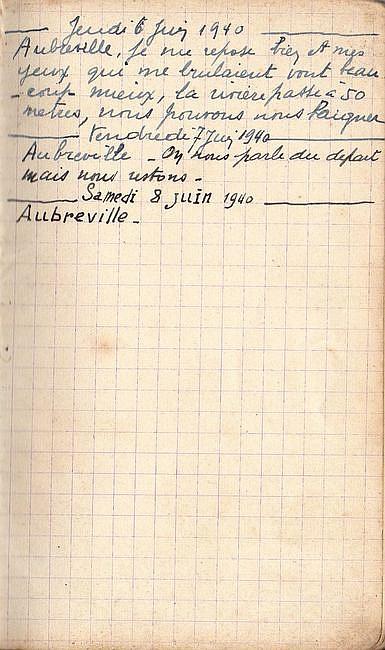 Jeudi 6 Juin 1940
Aubreville, je me repose bien et mes
yeux qui me brulaient vont beau
-coup mieux, la rivière passe à 50
metres, nous pouvons nous baigner
Vendredi 7 Juin 1940
Aubreville - On nous parle du depart
mais nous restons -
Samedi 8 juin 1940
Aubreville -